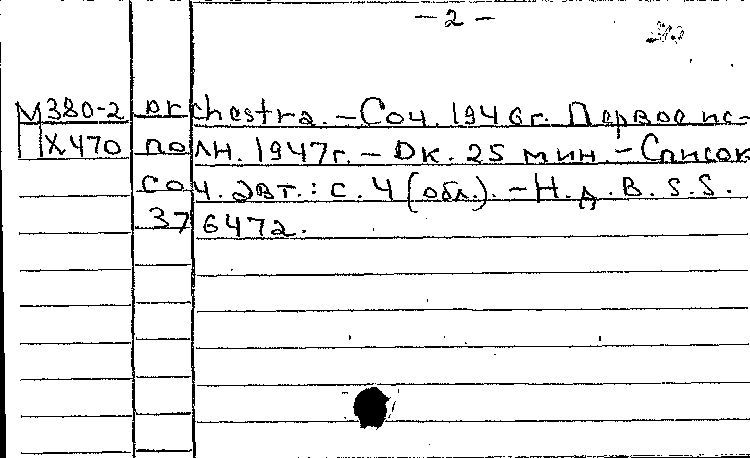 – 2 –
М380-2 orchestra. – Соч. 1946г. Первое ис-
Х470 полн. 1947г. – Ок. 25 мин. – Список
соч. авт.: с. 4 (обл.). – H. д. B. S. S.
37 6472.